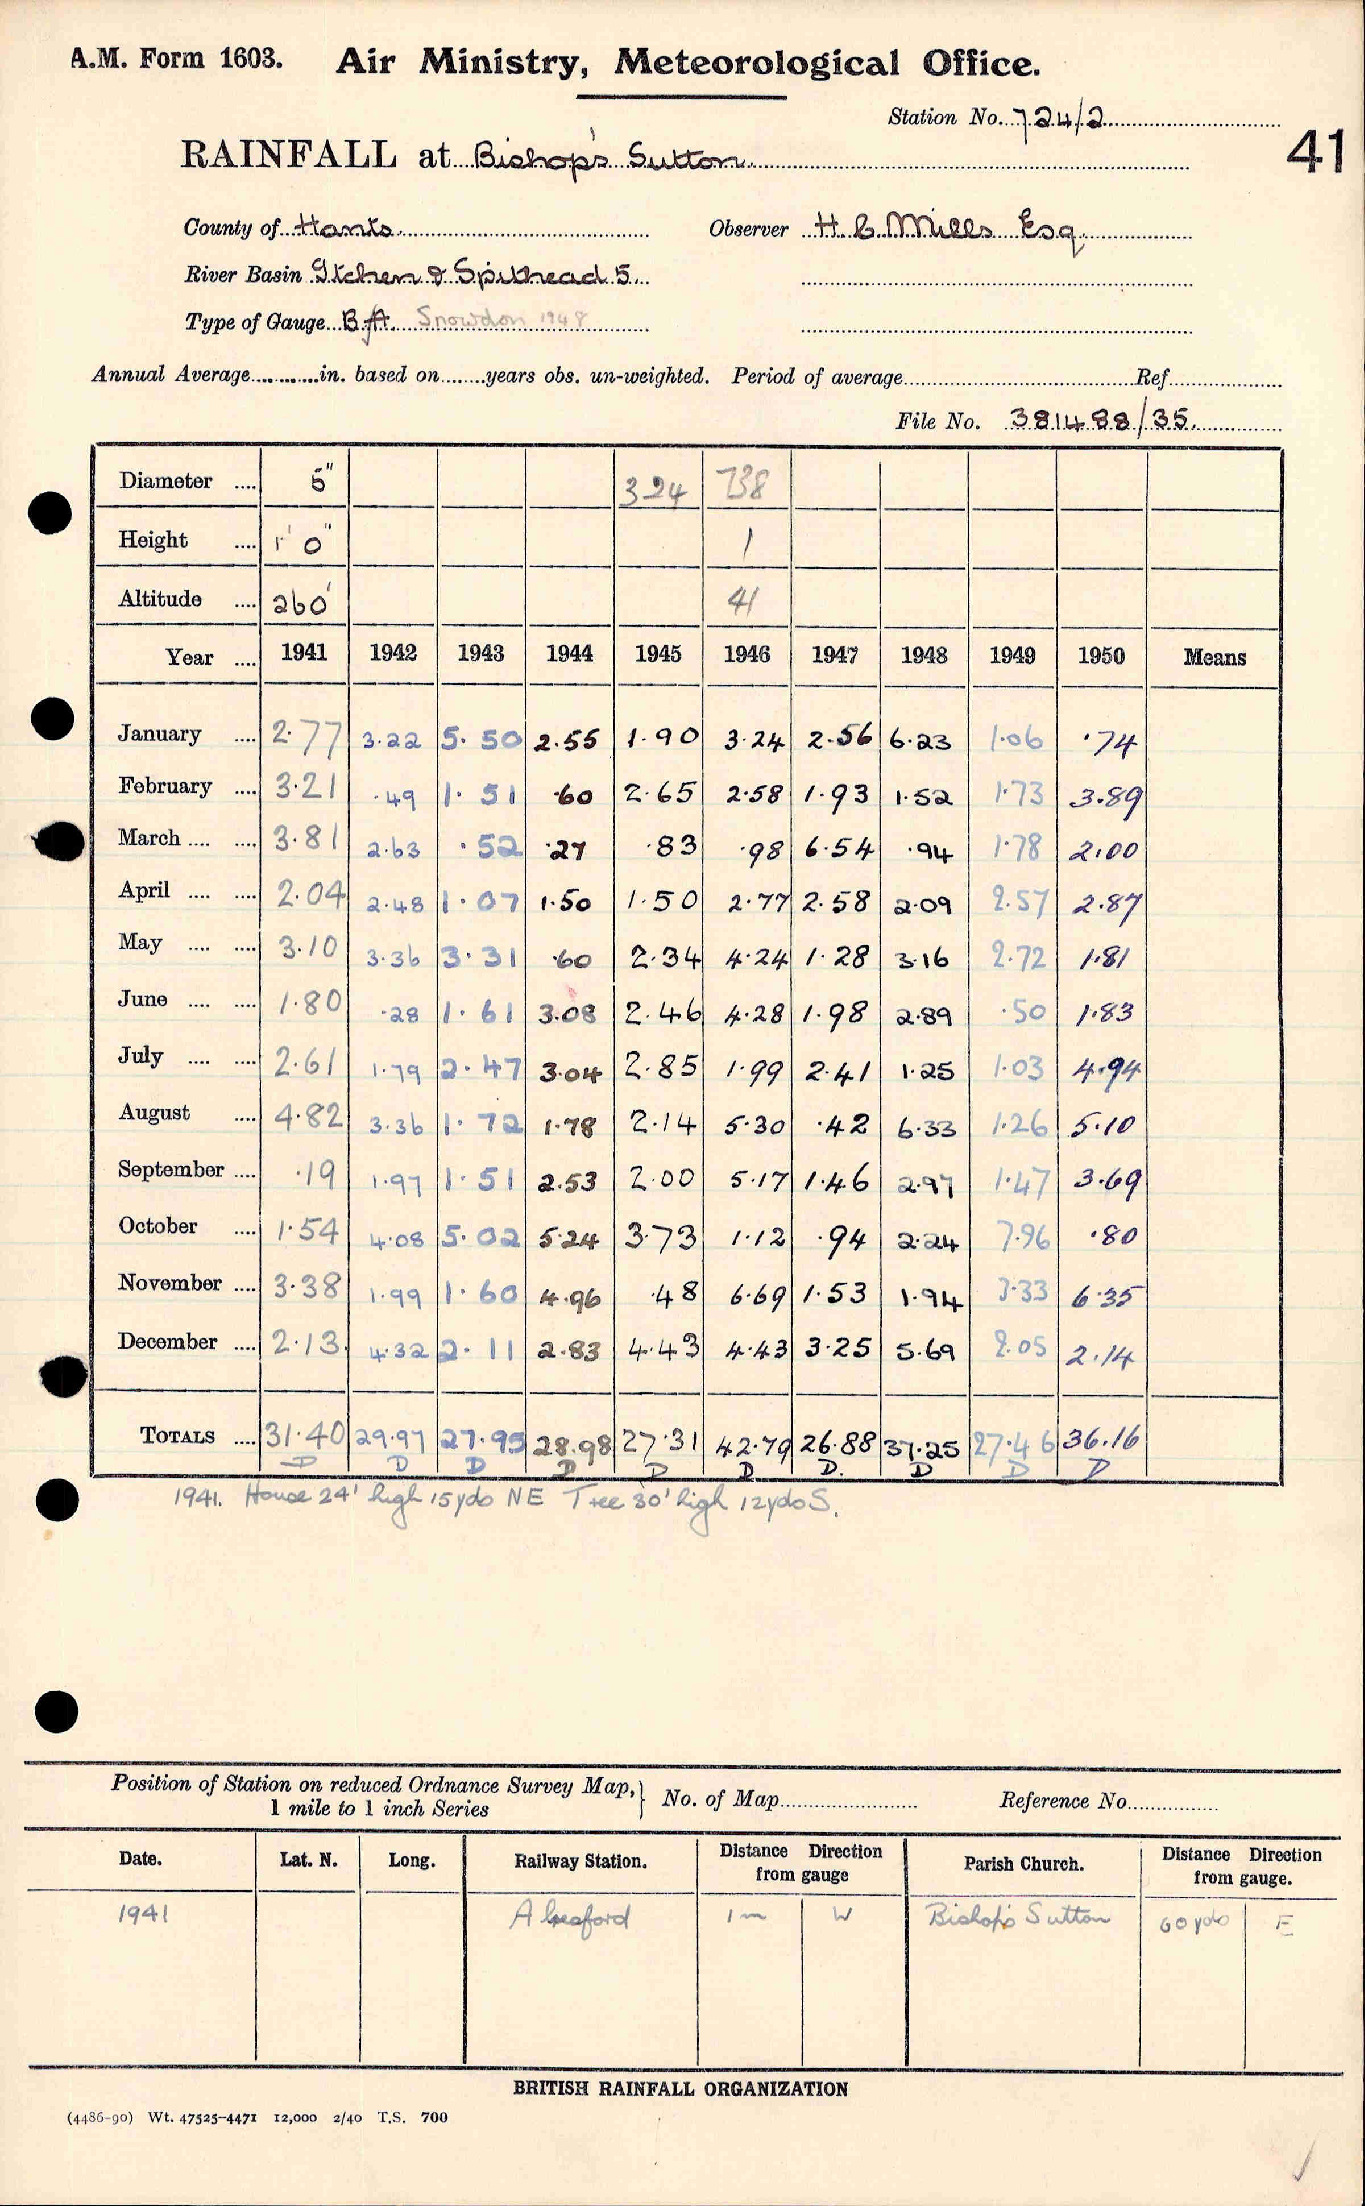 A.M. Form 1603. Air Ministry, Meteorological Office.
Station No. 724/2
41
RAINFALL at Bishop's Sutton
County of Hants. Observer H. C. Mills Esq.
River Basin Itchen & Spithead 5
Type of Gauge B.A. Snowdon 1948
Annual Average............in. based on........years obs. un-weighted. Period of average.................... Ref....................
File No. 381488/35.
Diameter .... 5" 324 738
Height .... 1' 0" 1
Altitude .... 260' 41
Year .... 1941 1942 1943 1944 1945 1946 1947 1948 1949 1950 Means
January .... 2.77 3.22 5.50 2.55 1.90 3.24 2.56 6.23 1.06 .74
February .... 3.21 .49 1.51 .60 2.65 2.58 1.93 1.52 1.73 3.89
March .... .... 3.81 2.63 .52 .27 .83 .98 6.54 .94 1.78 2.00
April .... .... 2.04 2.48 1.07 1.50 1.50 2.77 2.58 2.09 2.57 2.87
May .... .... 3.10 3.36 3.31 .60 2.34 4.24 1.28 3.16 2.72 1.81
June .... .... 1.80 .28 1.61 3.08 2.46 4.28 1.98 2.89 .50 1.83
July .... .... 2.61 1.79 2.47 3.04 2.85 1.99 2.41 1.25 1.03 4.94
August .... 4.82 3.36 1.72 1.78 2.14 5.30 .42 6.33 1.26 5.10
September .... .19 1.97 1.51 2.53 2.00 5.17 1.46 2.97 1.47 3.69
October .... 1.54 4.08 5.02 5.24 3.73 1.12 .94 2.24 7.96 .80
November .... 3.38 1.99 1.60 4.96 .48 6.69 1.53 1.94 3.33 6.35
December .... 2.13 4.32 2.11 2.83 4.43 4.43 3.25 5.69 2.05 2.14
TOTALS .... 31.40 29.97 27.95 28.98 27.31 42.79 26.88 37.25 27.46 36.16
D D D D D D D. D D D
1941. House 24' high 15 yds NE Tree 30' high 12 yds S.
Position of Station on reduced Ordnance Survey Map, } No. of Map........................ Reference No................
1 mile to 1 inch Series
Date. Lat. N. Long. Railway Station. Distance Direction from gauge Parish Church. Distance Direction from gauge.
1941 Alresford 1 m W Bishop's Sutton 60 yds E
BRITISH RAINFALL ORGANIZATION
(4486-90) Wt. 47525-4471 12,000 2/40 T.S. 700